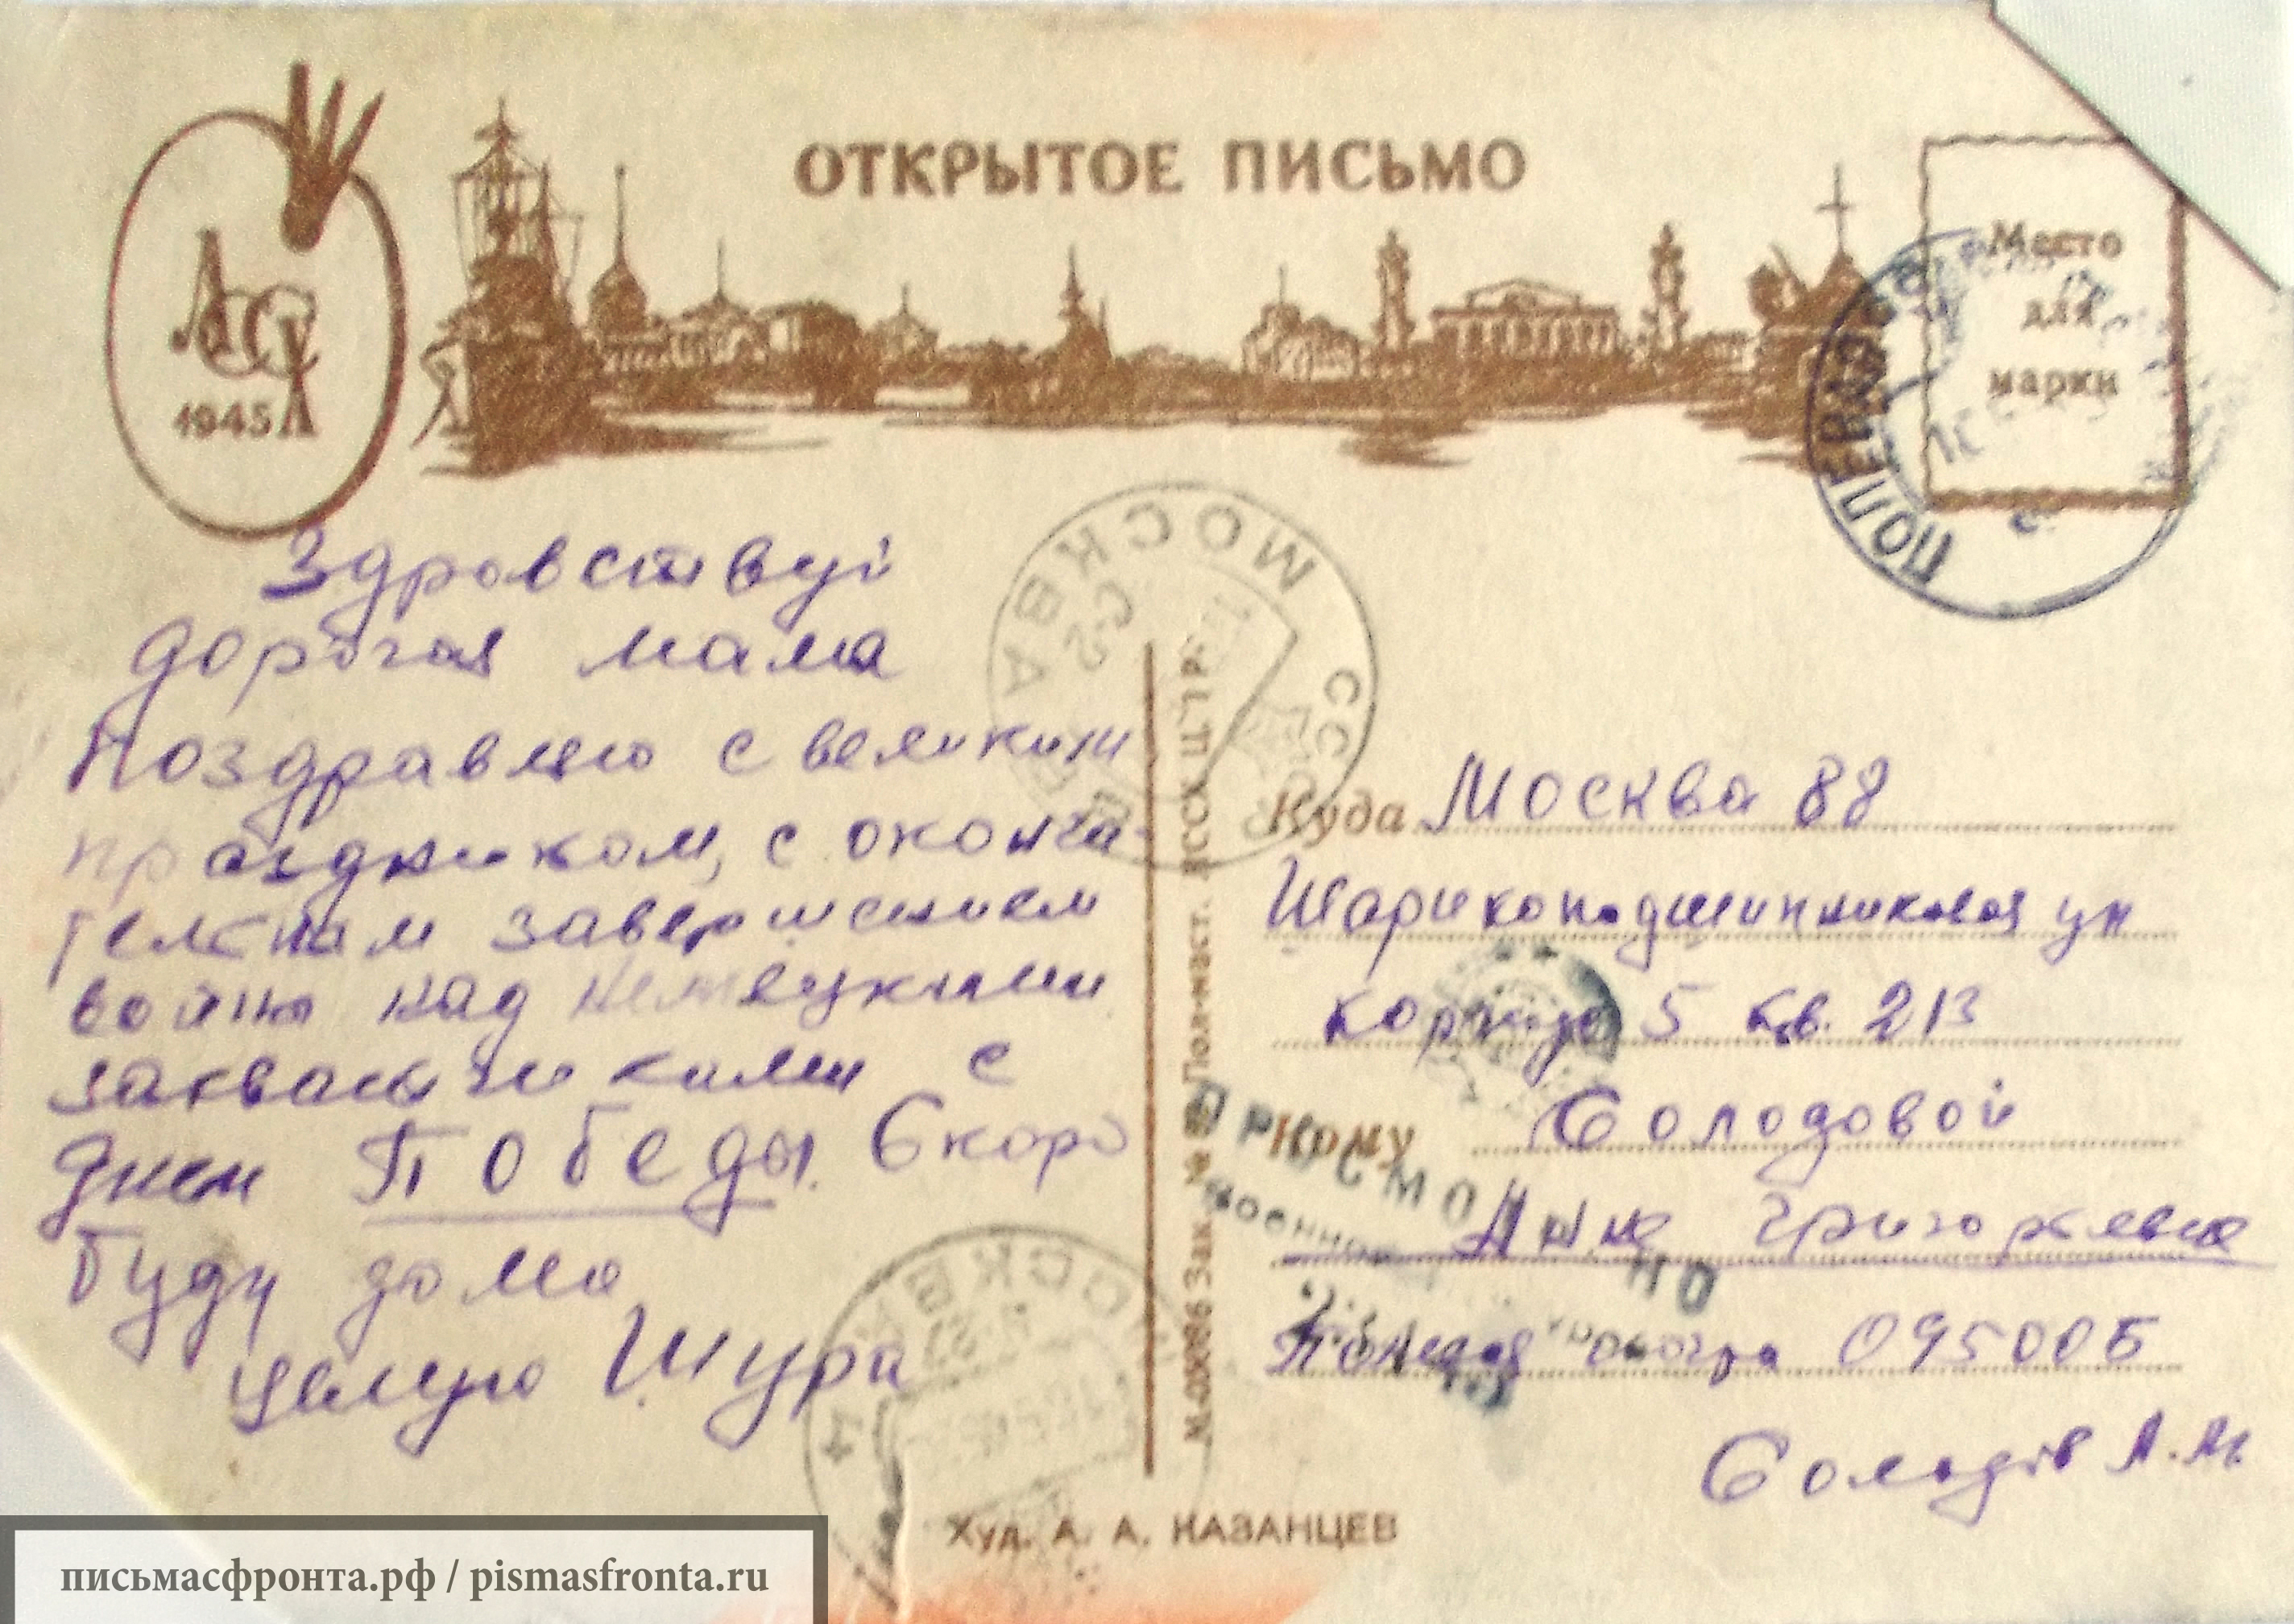 ОТКРЫТОЕ ПИСЬМО
ЛССХ
1945
Место
для
марки
ПОЛЕВАЯ
МОСКВА
СССР
Здравствуй
дорогая мама
Поздравляю с великим
праздником, с оконча-
тельным завершением
войны над немецкими
захватчиками с
днем Победы. Скоро
буду дома
целую Шура
Куда Москва 88
Шарикоподшипниковая ул
корпус 5 кв. 213
Кому Солодовой
Анне Григорьевне
Полевая почта 09500Б
Солодов А. М.
МОСКВА
ПИСЬМО
Военно
М-05086 Зак. № Пол-маст. ЛССХ Ц. 1 Р.
Худ. А. А. КАЗАНЦЕВ
письмасфронта.рф / pismasfronta.ru